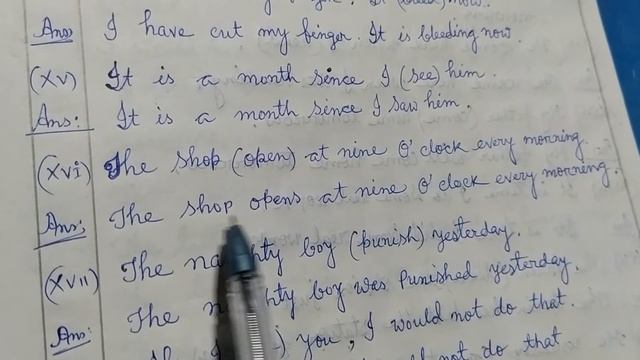 Ans I have cut my finger. It is bleeding now.
(XV) It is a month since I (see) him.
Ans: It is a month since I saw him.
(XVI) The shop (open) at nine O'clock every morning.
Ans: The shop opens at nine O'clock every morning.
(XVII) The boy (punish) yesterday.
Ans: The boy was Punished yesterday.
you, I would not do that.
not do that